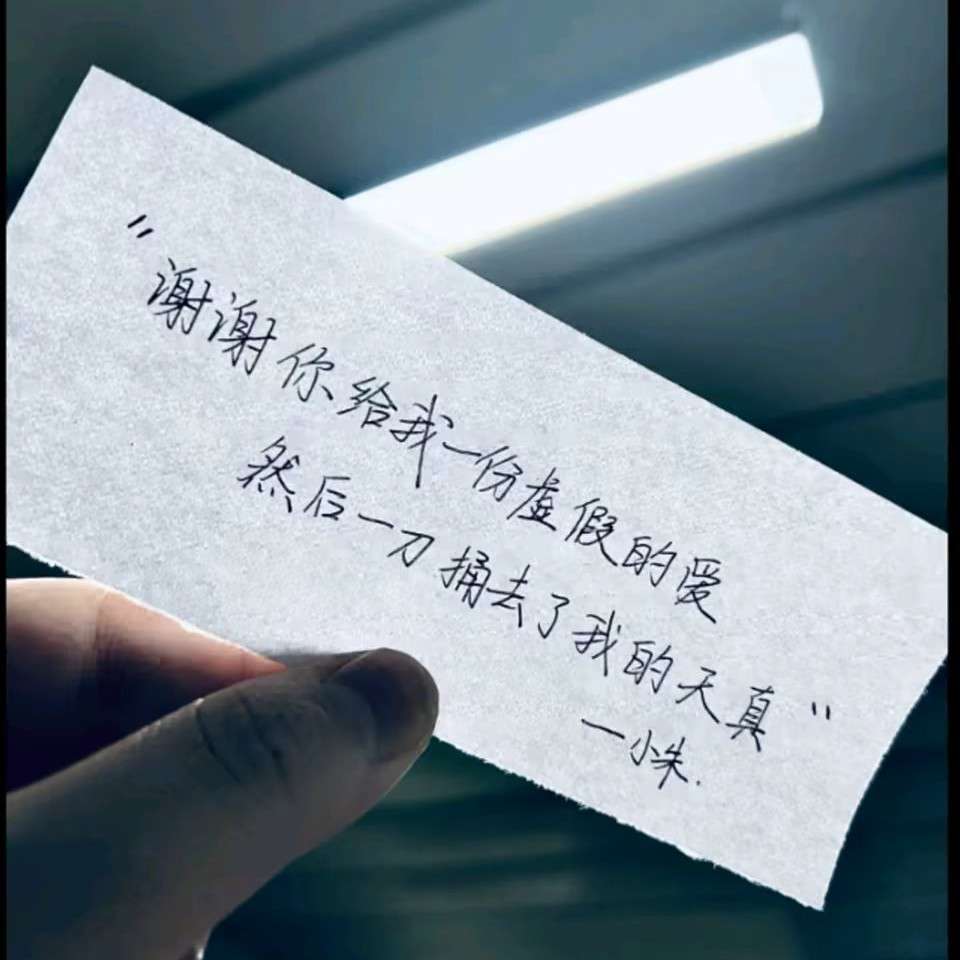 "谢谢你给我一份虚假的爱
然后一刀捅去了我的天真"
—小朱.